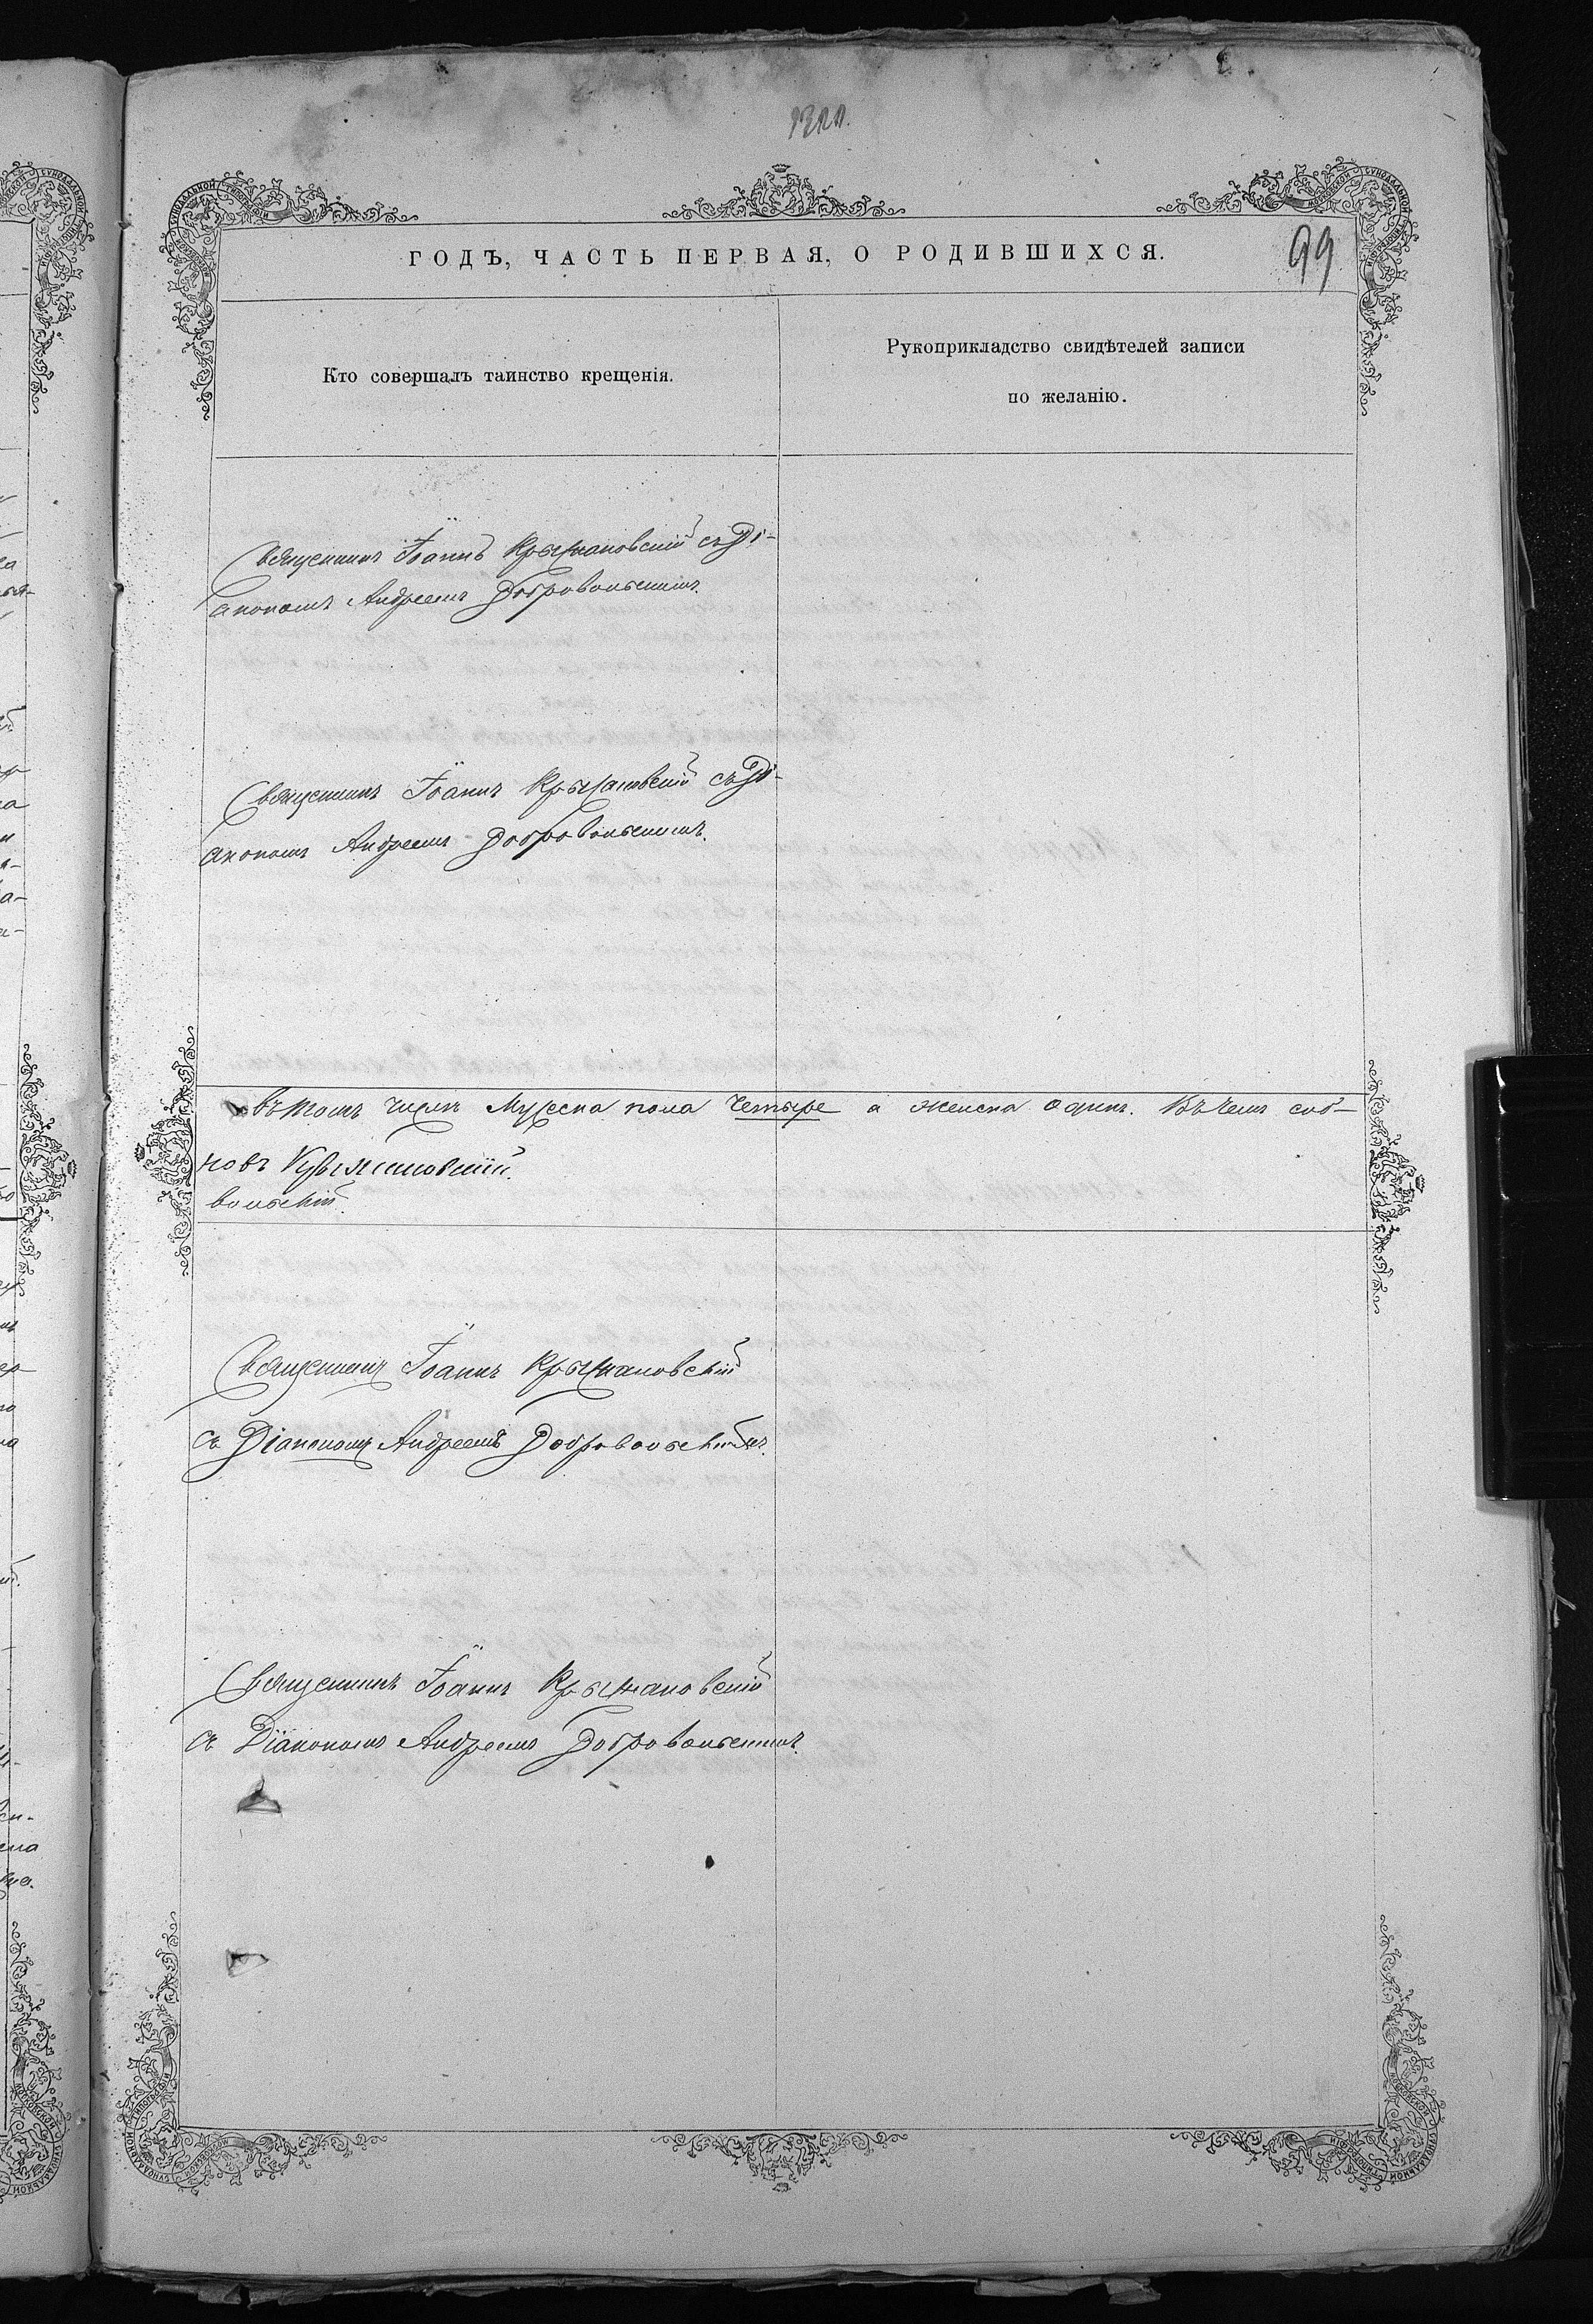 99
ГОДЪ, ЧАСТЬ ПЕРВАЯ, О РОДИВШИХСЯ.
Кто совершалъ таинство крещенія.
Рукоприкладство свидѣтелей записи
по желанію.
Священникъ Іоаннъ Крыжановскій съ Ді-
акономъ Андреемъ Добровольскимъ.
Священникъ Іоаннъ Крыжановскій съ Ді-
акономъ Андреемъ Добровольскимъ.
въ томъ числѣ Мужеска пола Четыре а женска одинъ. Въ чемъ
новъ Крыжановскій.
вольскій.
Священникъ Іоаннъ Крыжановскій
съ Діакономъ Андреемъ Добровольскимъ.
Священникъ Іоаннъ Крыжановскій
съ Діакономъ Андреемъ Добровольскимъ.